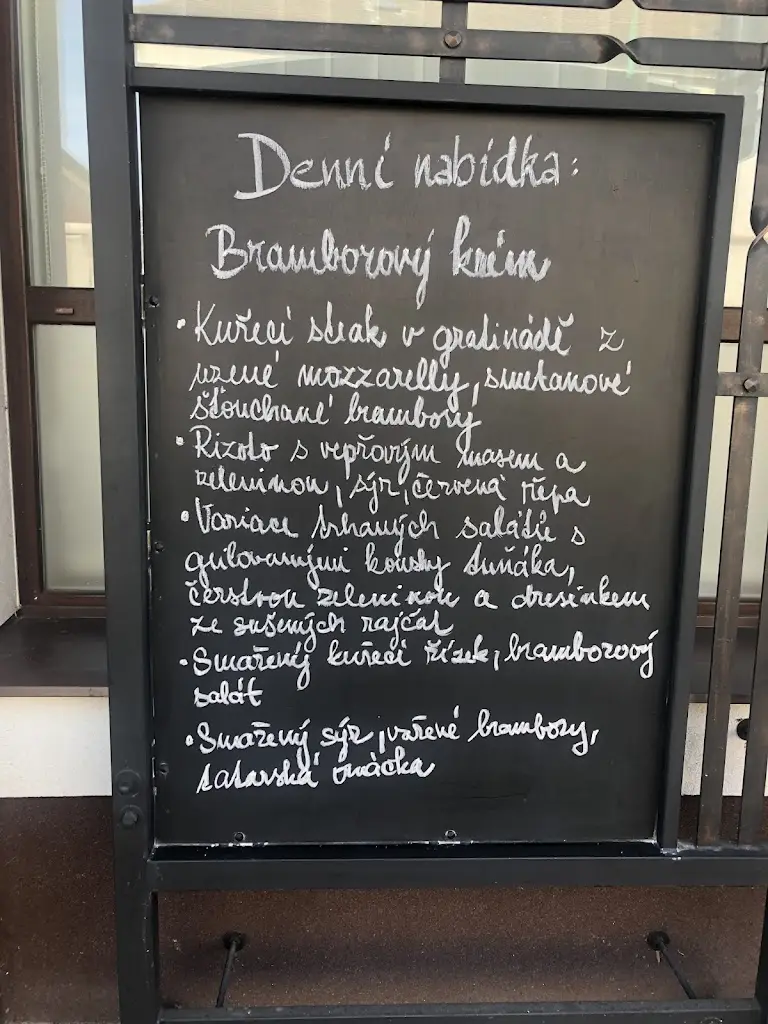 Denní nabídka:
Bramborový krém
• Kuřecí steak v gratinádě z
uzené mozzarelly, smetanové
šťouchané brambory
• Rizoto s vepřovým masem a
zeleninou, sýr, červená řepa
• Variace trhaných salátů s
grilovanými kousky tuňáka,
čerstvou zeleninou a dresinkem
ze sušených rajčat
• Smažený kuřecí řízek, bramborový
salát
• Smažený sýr, vařené brambory,
tatarská omáčka